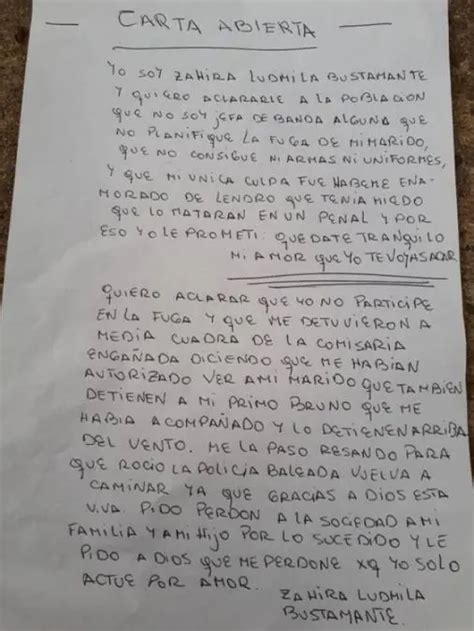 CARTA ABIERTA
YO SOY ZAHIRA LUDMILA BUSTAMANTE
Y QUIERO ACLARARLE A LA POBLACION
QUE NO SOY JEFA DE BANDA ALGUNA QUE
NO PLANIFIQUE LA FUGA DE MI MARIDO,
QUE NO CONSIGUE NI ARMAS NI UNIFORMES,
Y QUE MI UNICA CULPA FUE HABERME ENA-
MORADO DE LENDRO QUE TENIA MIEDO
QUE LO MATARAN EN UN PENAL Y POR
ESO YO LE PROMETI: QUEDATE TRANQUILO
MI AMOR QUE YO TE VOY A SACAR
QUIERO ACLARAR QUE YO NO PARTICIPE
EN LA FUGA Y QUE ME DETUVIERON A
MEDIA CUADRA DE LA COMISARIA
ENGAÑADA DICIENDO QUE ME HABIAN
AUTORIZADO VER A MI MARIDO QUE TAMBIEN
DETIENEN A MI PRIMO BRUNO QUE ME
HABIA ACOMPAÑADO Y LO DETIENEN ARRIBA
DEL VENTO. ME LA PASO RESANDO PARA
QUE ROCIO LA POLICIA BALEADA VUELVA A
CAMINAR YA QUE GRACIAS A DIOS ESTA
VIVA. PIDO PERDON A LA SOCIEDAD A MI
FAMILIA Y A MI HIJO POR LO SUCEDIDO Y LE
PIDO A DIOS QUE ME PERDONE XQ YO SOLO
ACTUE POR AMOR.
ZAHIRA LUDMILA
BUSTAMANTE.